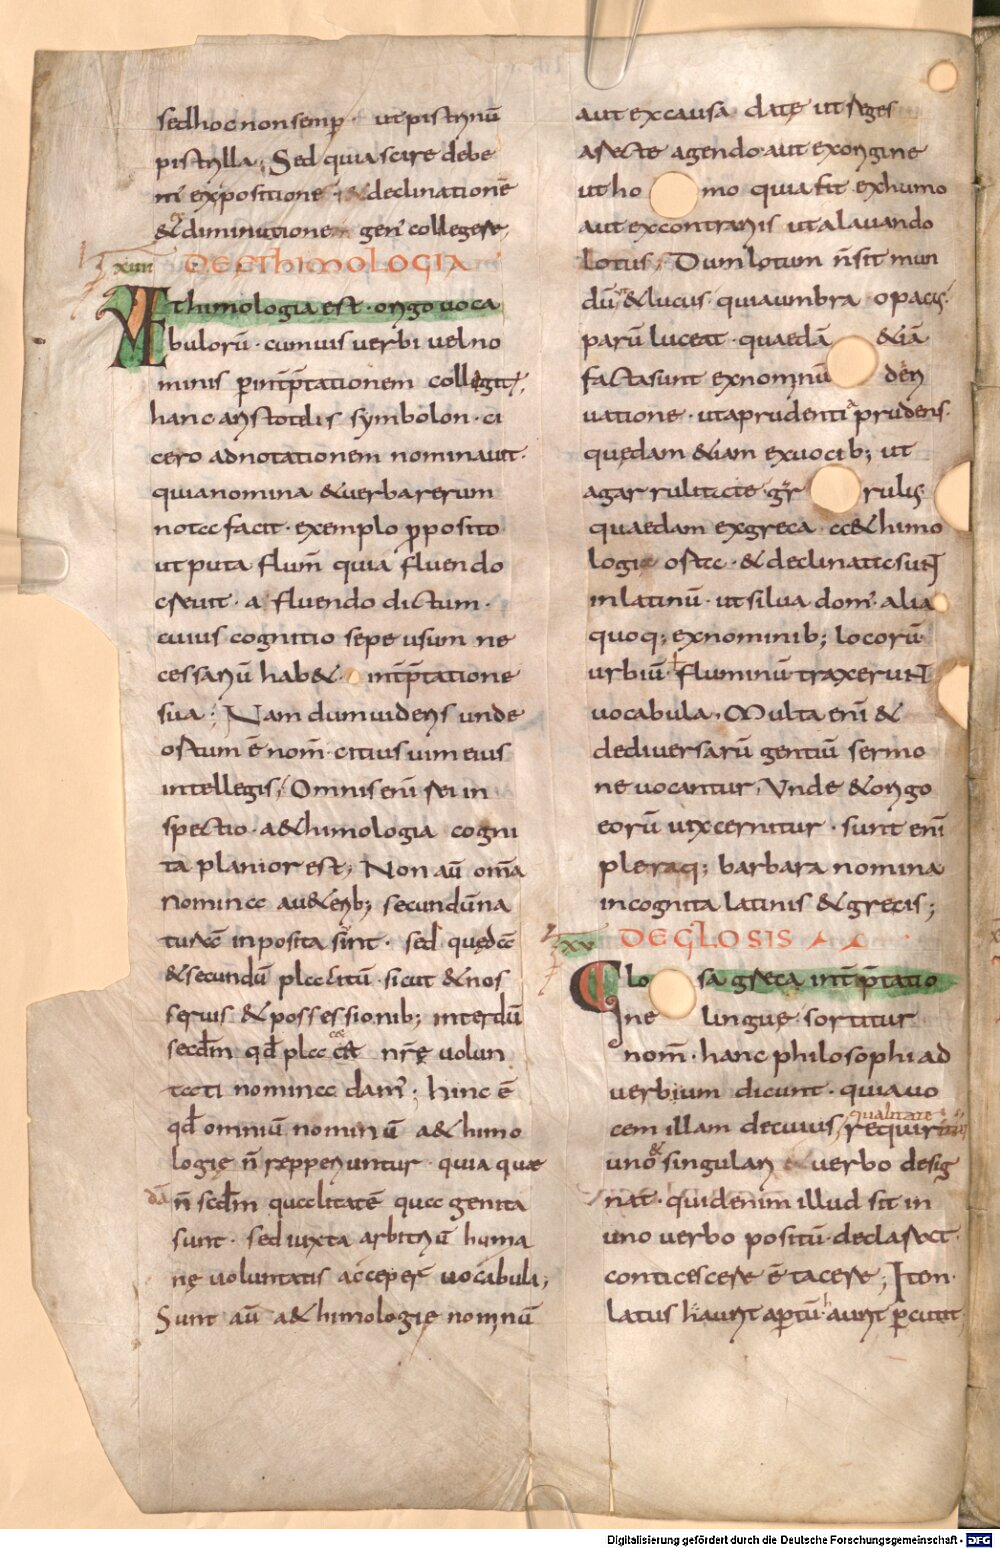 sedhoc non semp̲ ut pistrynū
pistrylla; Sed quia scire debe
m̄ expositione & declinationē
& diminutione gen̄ collegere,
xiiii DE ETHIMOLOGIA
Aethimologia est · origo uoca
bulorū · cum uis uerbi uel no
minis ꝑ int̄p̄tationem collegit͛,
hanc aristotelis symbolon · ci
cero adnotationem nominauit ·
quia nomina & uerba rerum
nota facit · exemplo ꝓposito
ut puta flum̄ quia fluendo
creuit · a fluendo dictum ·
cuius cognitio sepe usum ne
cessariū hab& · int̄p̄tatione
sua; Nam dum uideris unde
ortum ē nom̄ · citius uim eius
intellegis; Omnis enī rei in
spectio · a&himologia cogni
ta planior est; Non aū om̄a
nomina au&erib; secundū na
turā inposita sint · sed quędā
& secundū placitū · sicut & nos
seruis & possessionib; interdū
secdm̄ qd̄ placet nr̄ę uolun
tati nomina dam᾽; hinc ē
qd̄ omniū nominū a&himo
logię n̄ rępperiuntur · quia quæ
dā n̄ scdm̄ qualitatē qua genita
sunt · sed iuxta arbitriū huma
nę uoluntatis acceper̄ uocabula;
Sunt aū a&himologię nominū
aut ex causa datę ut reges
a recte agendo · aut ex origine
ut ho mo quia sit ex humo
aut ex contrariis ut a lauando
lotus; Dum lotum n̄ sit mun
dū & lucus · quia umbra opacus
parū luceat · quaedā &iā
facta sunt ex nominū deri
uatione · ut a prudentia prudens ·
quędam &iam ex uocib; ut
a garrulitate gar rulus
quaedam ex greca a&himo
logia orta · & declinata suNT
in latinū · ut silua dom᾽ · alia
quoq; ex nominib; locorū
urbiū ł fluminū traxeruNT
uocabula · Multa enī &
de diuersarū gentiū sermo
ne uocantur, Vnde & origo
eorū uix cernitur · sunt enī
pleraq; barbara nomina
incognita latinis & grecis;
xv DE GLOSIS
Glo sa greca int̄p̄tatio
ne linguę sortitur
nom̄ · hanc philosophi ad
uerbium dicunt · quia uo
qualitate
cem illam de cuius requirim᾽
uno & singulari uerbo desig
nat · quid enim illud sit in
uno uerbo positū declarat ·
conticescere ē tacere; Item ·
latus haurit aptū · haurit p̄cutit